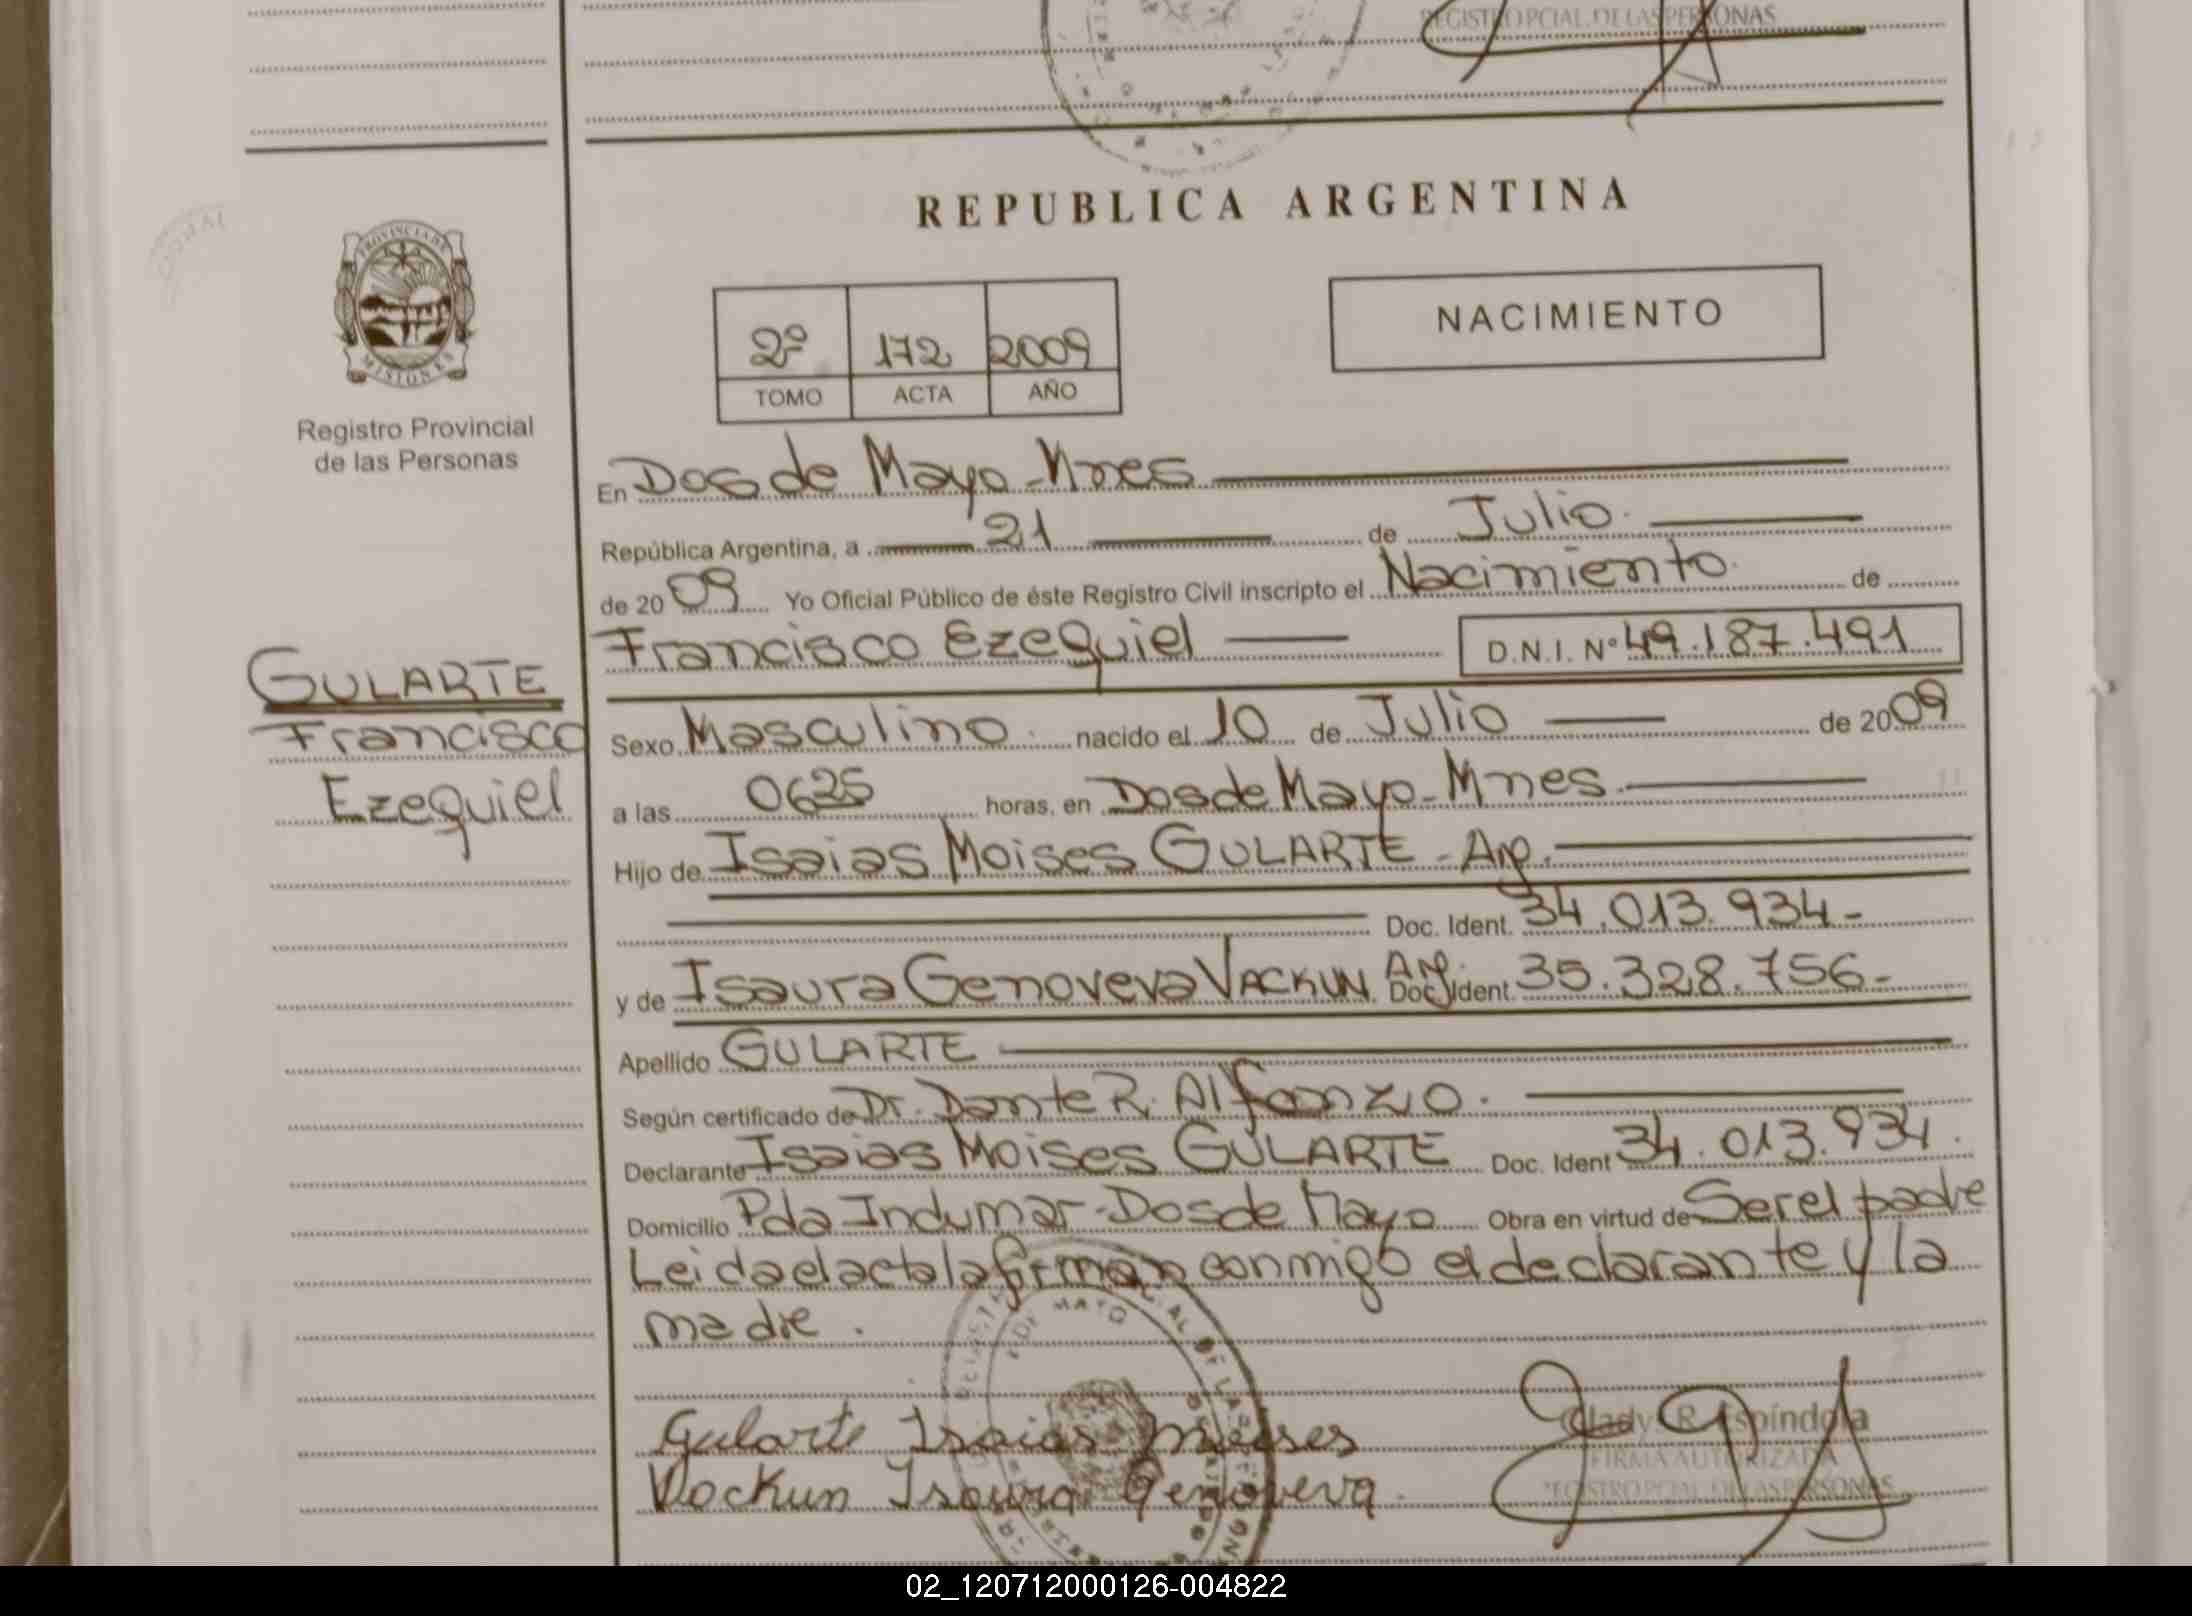 REGISTRO PCIAL. DE LAS PERSONAS
REPUBLICA ARGENTINA
PROVINCIA DE
MISIONES
Registro Provincial
de las Personas
2º 172 2009
TOMO ACTA AÑO
NACIMIENTO
En Dos de Mayo - Mnes
República Argentina, a 21 de Julio.
de 2009 Yo Oficial Público de éste Registro Civil inscripto el Nacimiento. de
Francisco Ezequiel D.N.I. Nº 49.187.491
GULARTE
Francisco
Ezequiel
Sexo Masculino. nacido el 10 de Julio de 2009
a las 0625 horas, en Dos de Mayo - Mnes.
Hijo de Isaias Moises GULARTE - Arg.
Doc. Ident. 34.013.934-
y de Isaura Genoveva VACKUN. Arg. Doc. Ident. 35.328.756-
Apellido GULARTE
Según certificado de Dr. Dante R. Alfonzo.
Declarante Isaias Moises GULARTE Doc. Ident 34.013.934.
Domicilio Pda Indumar - Dos de Mayo Obra en virtud de Ser el padre
Leida el acta la firman conmigo el declarante y la
madre.
Gularte Isaias Moises
Vackun Isaura Genoveva.
Gladys R. Espíndola
FIRMA AUTORIZADA
REGISTRO PCIAL. DE LAS PERSONAS
02_120712000126-004822